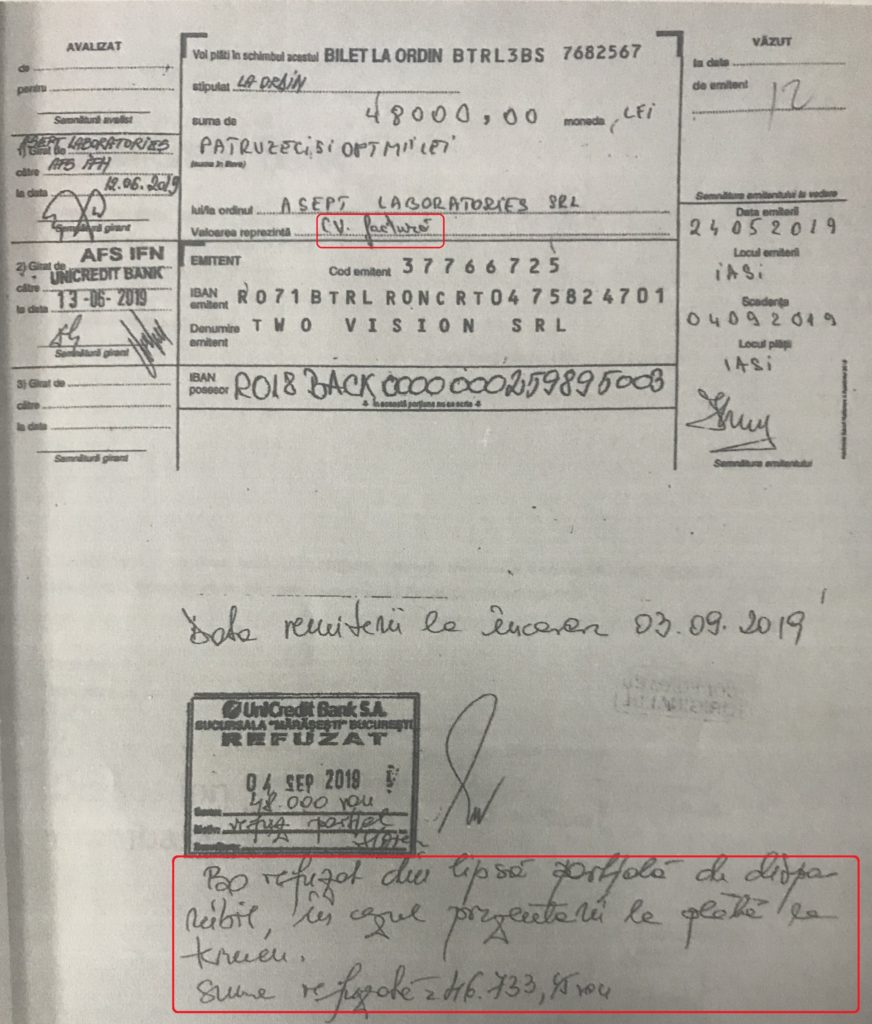 AVALIZAT
de
pentru
Semnătură avalist
ASEPT LABORATORIES
1) Girat de
către AFS IFN
la data 12.06.2019
Semnătură girant
AFS IFN
2) Girat de
UNICREDIT BANK
către
la data 13-06-2019
Semnătură girant
3) Girat de
către
la data
Semnătură girant
Voi plăti în schimbul acestui BILET LA ORDIN BTRL3BS 7682567
stipulat LA ORDIN
suma de 48000,00 moneda LEI
PATRUZECISIOPTMIILEI
(suma în litere)
lui/la ordinul ASEPT LABORATORIES SRL
Valoarea reprezintă CV. factură
EMITENT
Cod emitent 37766725
IBAN emitent RO71BTRLRONCRT0475824701
Denumire emitent TWO VISION SRL
IBAN posesor RO18BACX0000000259895003
În această porțiune nu se scrie
VĂZUT
la data
de emitent
12
Semnătura emitentului la vedere
Data emiterii
24052019
Locul emiterii
IASI
Scadența
04092019
Locul plății
IASI
Semnătura emitentului
Data remiterii la încasare 03.09.2019
UniCredit Bank S.A.
SUCURSALA "MĂRĂȘEȘTI" BUCUREȘTI
REFUZAT
04 SEP 2019
48.000 rou
refuz parțial
BO refuzat din lipsă parțială de dispo
nibil, în cazul prezentării la plată la
termen.
Suma refuzată = 46.733,45 rou